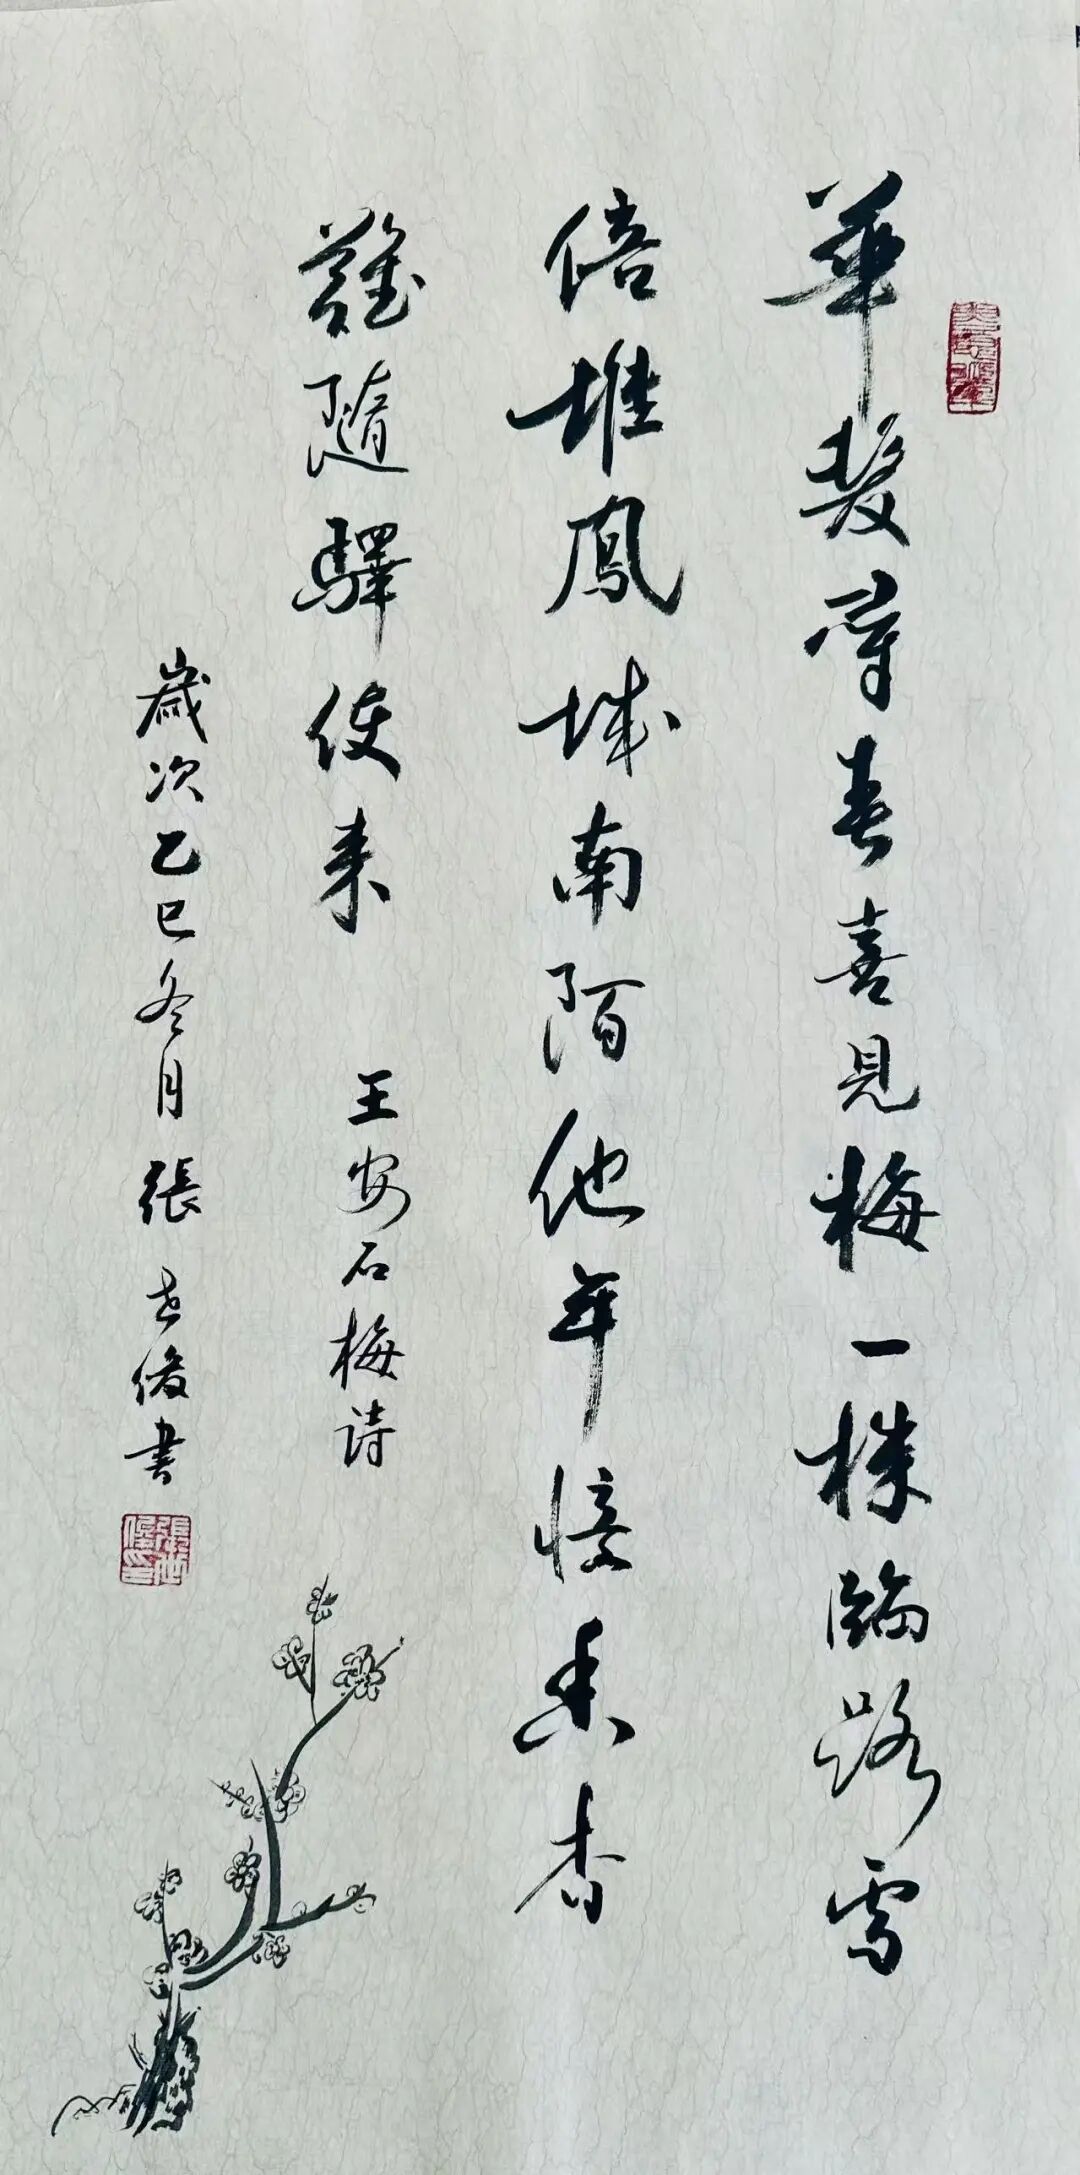 華髮尋春喜見梅一株臨路雪
倍堆鳳城南陌他年憶香杳
難隨驛使來
王安石梅诗
歲次乙巳冬月張世俊書
張世俊印